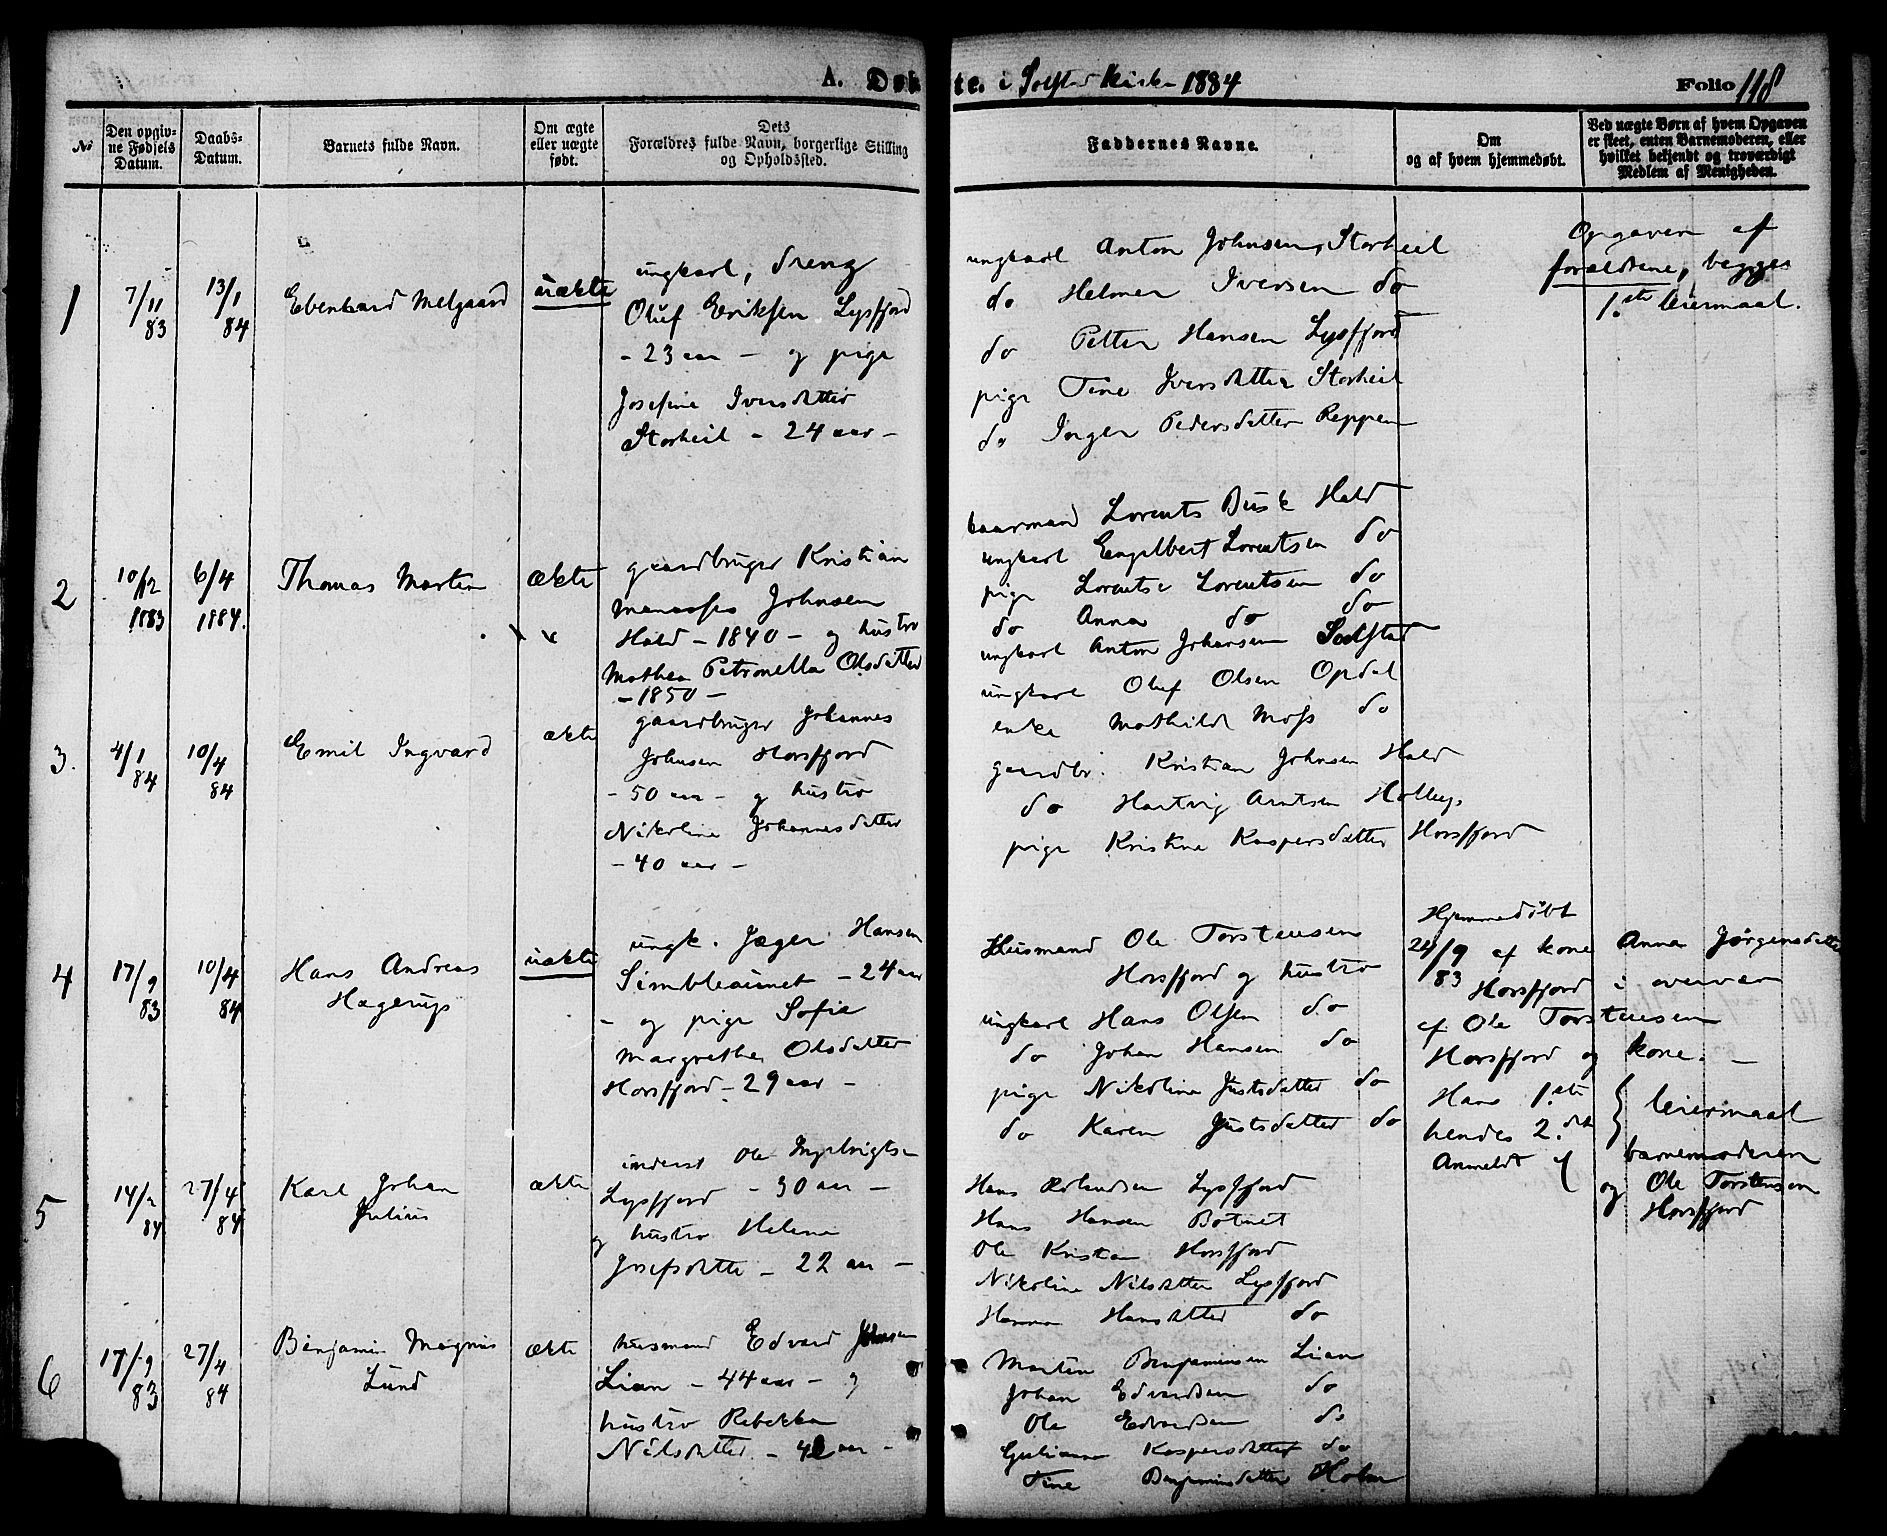 A. Døbte. i Solstad Kirke 1884 Folio 118
No
Den opgivne Fødsels Datum.
Daabs-Datum.
Barnets fulde Navn.
Om ægte eller uægte født.
Dets Forældres fulde Navn, borgerlige Stilling og Opholdssted.
Faddernes Navne.
Om og af hvem hjemmedøbt.
Ved uægte Børn af hvem Opgaven er skeet, enten Barnemoderen, eller hvilket bekjendt og troværdigt Medlem af Menigheden.
1
7/11 83
13/1 84
Ebenhard Melgaard
uækte
ungkarl, dreng
Oluf Eriksen Lysfjord
- 23 aar - og pige
Josefine Iversdatter
Storheil - 24 aar -
ungkarl Anton Johnsen, Storheil
do Helmer Iversen do
do Petter Hansen Lysfjord
pige Tine Iversdatter Storheil
do Inger Pedersdatter Reppen
Opgaven af
forældrene, begges
1.ste leiermaal.
2
10/12 1883
6/4 1884.
Thomas Martin
ækte
gaardbruger Kristian
Manasses Johnsen
Hald - 1840 - og hustro
Mathea Petronella Olsdatter
- 1850 -
kaarmand Lorents Busk Hald
ungkarl Engelbert Lorentsen do
pige Lorentse Lorentsen do
do Anna do do
ungkarl Anton Johansen Solstad
3.
4/1 84
10/4 84
Emil Ingvard
ækte
gaardbruger Johannes
Johnsen Horsfjord
- 50 aar - og hustro
Nikoline Johannesdatter
- 40 aar -
ungkarl Oluf Olsen Opdal
enke Mathilde Moss do
gaardbr. Kristian Johnsen Hald
do Hartvig Arntsen
pige Kristine Kaspersdatter Horsfjord
4
17/9 83
10/4 84
Hans Andreas
Hagerup
uækte
ungk. Jæger Hansen
- 24 aar
- og pige Sofie
Margrethe Olsdatter
Horsfjord - 29 aar -
Husmand Ole Torstensen
Horsfjord og hustro
ungkarl Hans Olsen do
do Johan Hansen do
pige Nikoline Justsdatter do
do Karen Justsdatter do
Hjemmedøbt
24/9 83 af kone Anna Jørgensdatter
Horsfjord i overvær
af Ole Torstensen
Horsfjord og kone. -
Hans 1.ste
hendes 2.det } leiermaal
Anmeldt af barnemoderen
og Ole Torstensen
Horsfjord
5
14/2 84
27/4 84
Karl Johan
Julius
ækte
inderst Ole Ingebrigts-
Lysfjord - 30 aar -
og hustro Helene
Josefsdatter - 22 aar -
Hans Lysfjord
Hans Hansen Botnet
Ole Kristian Horsfjord
Nikoline Nilsdatter Lysfjord
Hanna Hansdatter do
6
17/9 83
27/4 84
Benjamin Magnus
Lund
ækte
husmand Edvard Johnsen
Lian - 44 aar - og
hustro Rebekka
Nilsdatter - 42 aar -
Martin Benjaminsen Lian
Johan Edvardsen do
Ole Edvardsen do
Juliana Kaspersdatter do
Tine Benjaminsdatter Holm